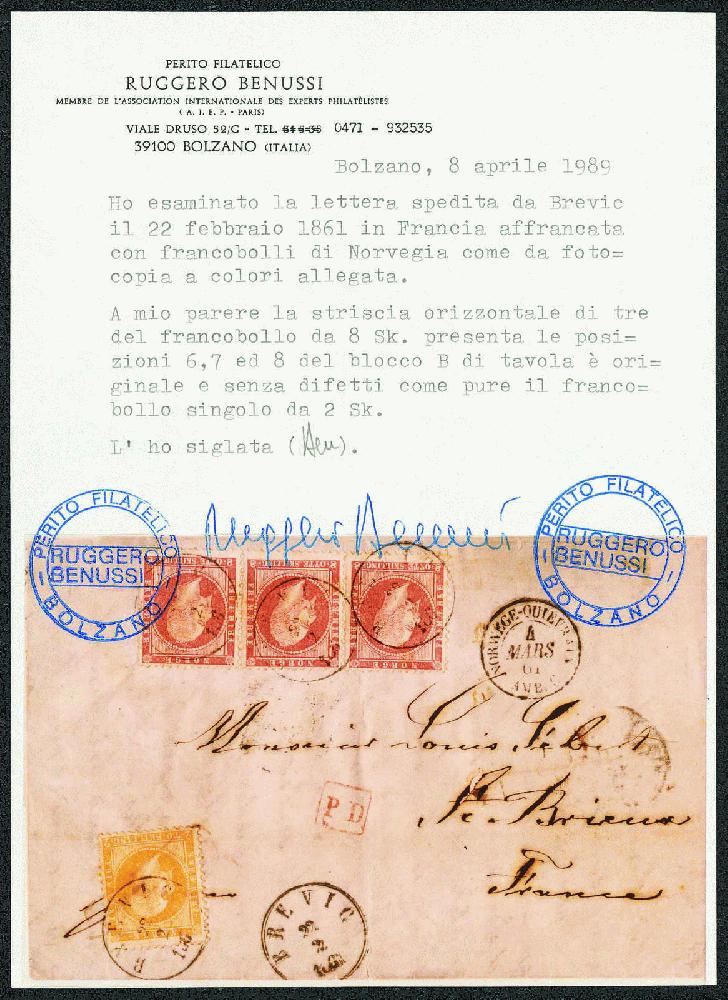 PERITO FILATELICO
RUGGERO BENUSSI
MEMBRE DE L'ASSOCIATION INTERNATIONALE DES EXPERTS PHILATÉLISTES
( A. I. E. P. - PARIS)
VIALE DRUSO 52/G - TEL. 0471 - 932535
39100 BOLZANO (ITALIA)
Bolzano, 8 aprile 1989
Ho esaminato la lettera spedita da Brevic
il 22 febbraio 1861 in Francia affrancata
con francobolli di Norvegia come da foto=
copia a colori allegata.
A mio parere la striscia orizzontale di tre
del francobollo da 8 Sk. presenta le posi=
zioni 6,7 ed 8 del blocco B di tavola è ori=
ginale e senza difetti come pure il franco=
bollo singolo da 2 Sk.
L' ho siglata ( ).
PERITO FILATELICO
RUGGERO
BENUSSI
BOLZANO
Ruggero Benussi
PERITO FILATELICO
RUGGERO
BENUSSI
BOLZANO
NORGE
NORGE
NORGE
4
MARS
61
Monsieur Louis
St. Brieux
France
PD
BREVIG
22
2
BREVIG
22
2